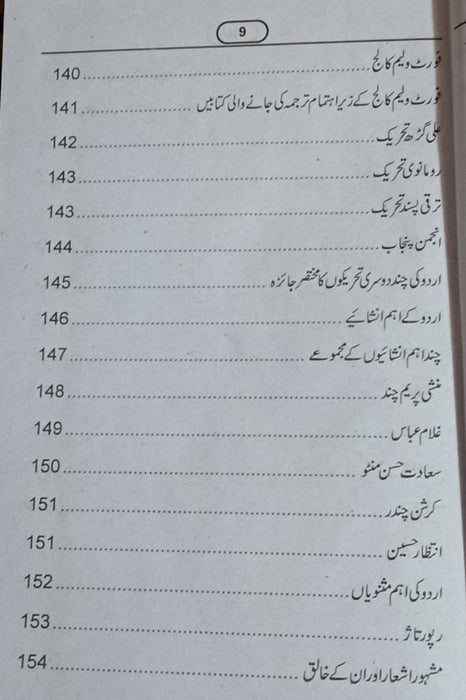 9
فورٹ ولیم کالج ........ 140
فورٹ ولیم کالج کے زیر اہتمام ترجمہ کی جانے والی کتابیں ........ 141
علی گڑھ تحریک ........ 142
رومانوی تحریک ........ 143
ترقی پسند تحریک ........ 143
انجمن پنجاب ........ 144
اردو کی چند دوسری تحریکوں کا مختصر جائزہ ........ 145
اردو کے اہم انشائیے ........ 146
چند اہم انشائیوں کے مجموعے ........ 147
منشی پریم چند ........ 148
غلام عباس ........ 149
سعادت حسن منٹو ........ 150
کرشن چندر ........ 151
انتظار حسین ........ 151
اردو کی اہم مثنویاں ........ 152
رپورتاژ ........ 153
مشہور اشعار اور ان کے خالق ........ 154